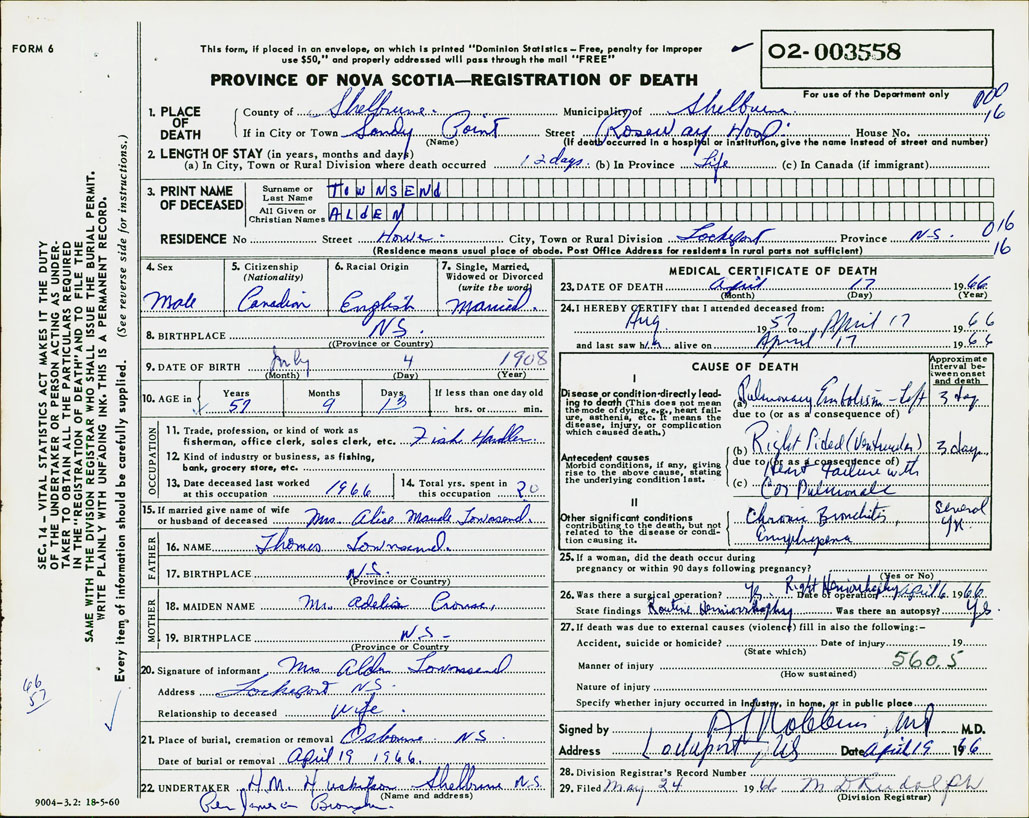 FORM 6
This form, if placed in an envelope, on which is printed "Dominion Statistics – Free, penalty for improper
use $50," and properly addressed will pass through the mail "FREE"
02-003558
PROVINCE OF NOVA SCOTIA—REGISTRATION OF DEATH
For use of the Department only
000
16
1. PLACE OF DEATH
County of Shelburne Municipality of Shelburne
If in City or Town Sandy Point Street Roseway Hosp. House No.
(Name) (If death occurred in a hospital or institution, give the name instead of street and number)
2. LENGTH OF STAY (in years, months and days)
(a) In City, Town or Rural Division where death occurred 12 days. (b) In Province Life (c) In Canada (if immigrant)
3. PRINT NAME OF DECEASED
Surname or Last Name TOWNSEND
All Given or Christian Names ALDEN
RESIDENCE No Street Howe City, Town or Rural Division Lockeport Province N.S.
016
16
(Residence means usual place of abode. Post Office Address for residents in rural parts not sufficient)
4. Sex Male
5. Citizenship (Nationality) Canadian
6. Racial Origin English
7. Single, Married, Widowed or Divorced (write the word) Married.
8. BIRTHPLACE N.S.
(Province or Country)
9. DATE OF BIRTH July 4 1908
(Month) (Day) (Year)
10. AGE in Years 57 Months 9 Days 13 If less than one day old hrs. or min.
OCCUPATION
11. Trade, profession, or kind of work as
fisherman, office clerk, sales clerk, etc. Fish Handler
12. Kind of industry or business, as fishing,
bank, grocery store, etc.
13. Date deceased last worked
at this occupation 1966
14. Total yrs. spent in
this occupation 20
15. If married give name of wife
or husband of deceased Mrs. Alice Maude Townsend.
FATHER
16. NAME Thomas Townsend.
17. BIRTHPLACE N.S.
(Province or Country)
MOTHER
18. MAIDEN NAME Mrs. Adelia Crouse,
19. BIRTHPLACE N.S.
(Province or Country)
20. Signature of informant Mrs Alden Townsend
Address Lockeport N.S.
Relationship to deceased Wife
21. Place of burial, cremation or removal Osborne N.S
Date of burial or removal April 19 1966.
22. UNDERTAKER H.M. Huskilson Shelburne N.S.
(Name and address)
Per
MEDICAL CERTIFICATE OF DEATH
23. DATE OF DEATH April 17 1966
(Month) (Day) (Year)
24. I HEREBY CERTIFY that I attended deceased from:
Aug 1957 to April 17 1966
and last saw him alive on April 17 1966
CAUSE OF DEATH
Approximate Interval between onset and death
I
Disease or condition directly leading to death (This does not mean the mode of dying, e.g., heart failure, asthenia, etc. It means the disease, injury, or complication which caused death.)
(a) Pulmonary Embolism - Left 3 day
due to (or as a consequence of)
Antecedent causes
Morbid conditions, if any, giving rise to the above cause, stating the underlying condition last.
(b) Right Sided (Ventricular) 3 days
due to (or as a consequence of)
Heart Failure with
(c) Cor Pulmonale
II
Other significant conditions contributing to the death, but not related to the disease or condition causing it.
Chronic Bronchitis, Several yr.
Emphysema
25. If a woman, did the death occur during
pregnancy or within 90 days following pregnancy?
(Yes or No)
26. Was there a surgical operation? Yes Right Herniorrhaphy Date of operation April 6 1966
State findings Routine Herniorrhaphy Was there an autopsy? Yes
27. If death was due to external causes (violence) fill in also the following:–
Accident, suicide or homicide? Date of injury 19
(State which)
Manner of injury 560.5
(How sustained)
Nature of injury
Specify whether injury occurred in industry, in home, or in public place
Signed by Robbins, MD M.D.
Address Lockeport, NS Date April 19 1966
28. Division Registrar's Record Number
29. Filed May 24 1966 M D Rudolph
(Division Registrar)
SEC. 14 – VITAL STATISTICS ACT MAKES IT THE DUTY
OF THE UNDERTAKER OR PERSON ACTING AS UNDER-
TAKER TO OBTAIN ALL THE PARTICULARS REQUIRED
IN THE "REGISTRATION OF DEATH" AND TO FILE THE
SAME WITH THE DIVISION REGISTRAR WHO SHALL ISSUE THE BURIAL PERMIT.
WRITE PLAINLY WITH UNFADING INK. THIS IS A PERMANENT RECORD.
Every item of information should be carefully supplied. (See reverse side for instructions.)
66
57
9004–3.2: 18-5-60